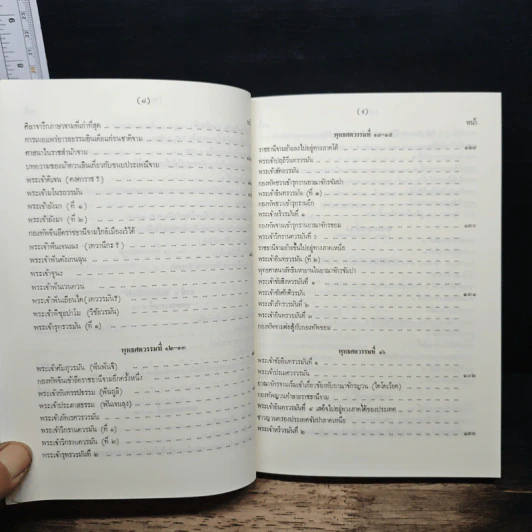 (๘)
ศิลาจารึกภาษาจามที่เก่าที่สุด
การเผยแพร่อารยธรรมอินเดียแก่ชนชาติจาม
ศาสนาในราชสำนักจาม
บทความของม้าตวนลินเกี่ยวกับขนบประเพณีจาม
พระเจ้าตีเชน (คงคาราช ?)
พระเจ้ามโนรถวรมัน
พระเจ้ายังมา (ที่ ๑)
พระเจ้ายังมา (ที่ ๒)
กองทัพจีนตีราชธานีจามใกล้เมืองเว้ได้
พระเจ้าฟันเชนเฉง (เทวานีกะ ?)
พระเจ้าฟันตังเกนฉุน
พระเจ้าจุนง
พระเจ้าฟันเวนควน
พระเจ้าฟันเถียนไค (เทววรมัน?)
พระเจ้าพิซุยปาโม (วิชัยวรมัน)
พระเจ้ารุทรวรมัน (ที่ ๑)
พุทธศตวรรษที่ ๑๒-๑๓
พระเจ้าศัมภุวรมัน (ฟันฟันชิ)
กองทัพจีนเข้าตีราชธานีจามอีกครั้งหนึ่ง
พระเจ้ากันทรรปธรรม (ฟันตูลี)
พระเจ้าประภาสธรรม (ฟันเจนลุง)
พระเจ้าภัทเรศวรวรมัน
พระเจ้าวิกรานตวรมัน (ที่ ๑)
พระเจ้าวิกรานตวรมัน (ที่ ๒)
พระเจ้ารุทรวรมันที่ ๒
(๙)
หน้า
พุทธศตวรรษที่ ๑๔-๑๕
ราชธานีจามย้ายลงไปอยู่ทางภาคใต้ ๑๒๙
พระเจ้าปฤถิวีนทรวรมัน
พระเจ้าสัตยวรมัน
กองทัพชวาเข้ารุกรานอาณาจักรจัมปา
พระเจ้าอินทรวรมัน (ที่ ๑)
กองทัพชวาเข้ารุกรานอีก
พระเจ้าหริวรมันที่ ๑
กองทัพจามเข้ารุกรานอาณาจักรขอม ๑๓๐
พระเจ้าวิกรานตวรมันที่ ๓
ราชธานีจามย้ายขึ้นไปอยู่ทางภาคเหนือ
พระเจ้าอินทรวรมัน (ที่ ๒)
พุทธศาสนาลัทธิมหายานในอาณาจักรจัมปา
พระเจ้าชัยสิงหวรมันที่ ๑
พระเจ้าชัยศักติวรมัน ๑๓๑
พระเจ้าภัทรวรมันที่ ๒
พระเจ้าอินทรวรมันที่ ๓
กองทัพจามต่อสู้กับกองทัพขอม
พุทธศตวรรษที่ ๑๖
พระเจ้าชัยอินทรวรมันที่ ๑
พระเจ้าปรเมศวรวรมัน ๑๓๒
กองทัพญวนทำลายราชธานีจาม
พระเจ้าอินทรวรมันที่ ๔ เสด็จไปอยู่ทางภาคใต้ของประเทศ
ชาวญวนครองประเทศจัมปาภาคเหนือ
พระเจ้าหริวรมันที่ ๒ ๑๓๓